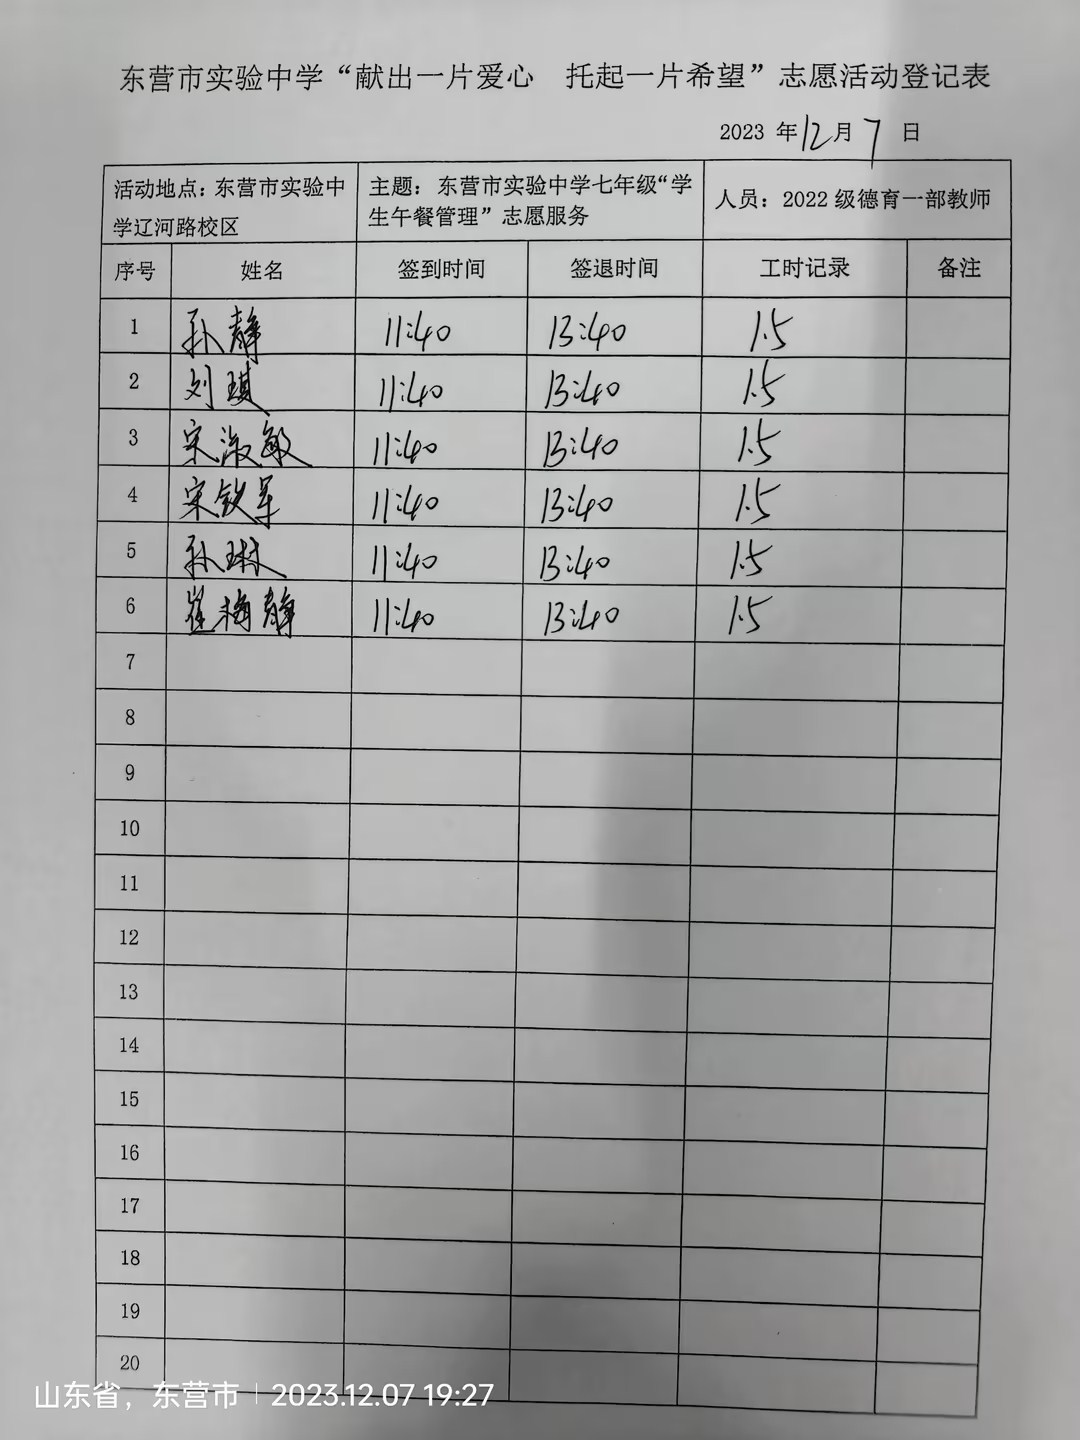 东营市实验中学“献出一片爱心　托起一片希望”志愿活动登记表
2023 年12月7日
活动地点：东营市实验中
学辽河路校区
主题：东营市实验中学七年级“学
生午餐管理”志愿服务
人员：2022 级德育一部教师
序号 姓名 签到时间 签退时间 工时记录 备注
1 孙静 11:40 13:40 1.5
2 刘琪 11:40 13:40 1.5
3 宋淑敏 11:40 13:40 1.5
4 宋钦军 11:40 13:40 1.5
5 孙琳 11:40 13:40 1.5
6 崔梅静 11:40 13:40 1.5
7
8
9
10
11
12
13
14
15
16
17
18
19
20
山东省，东营市 | 2023.12.07 19:27